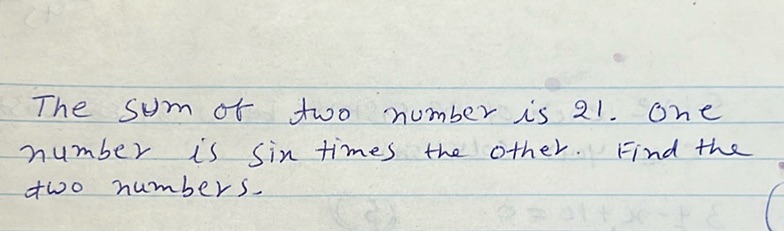 The sum of two number is 21. one
number is sin times the other. Find the
two numbers.